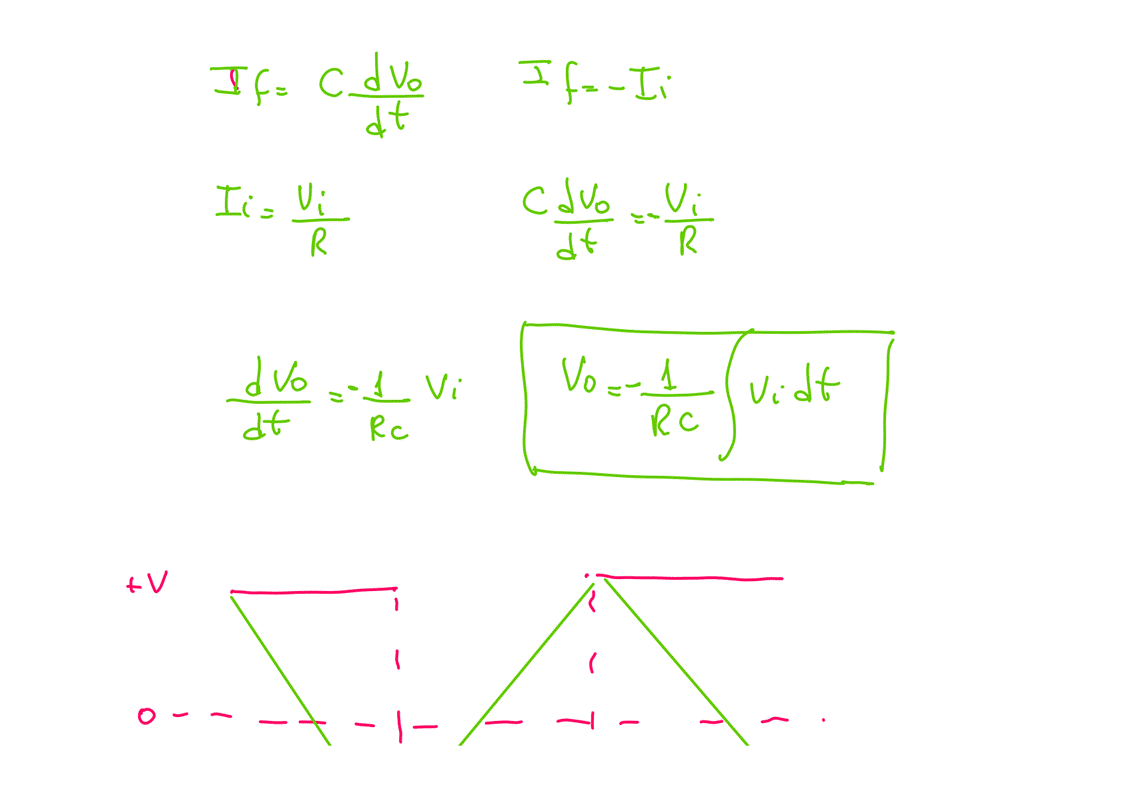 If = C dVo/dt    If = -Ii
Ii = Vi/R    C dVo/dt = - Vi/R
dVo/dt = - 1/RC Vi    Vo = - 1/RC ∫ Vi dt
+V
0